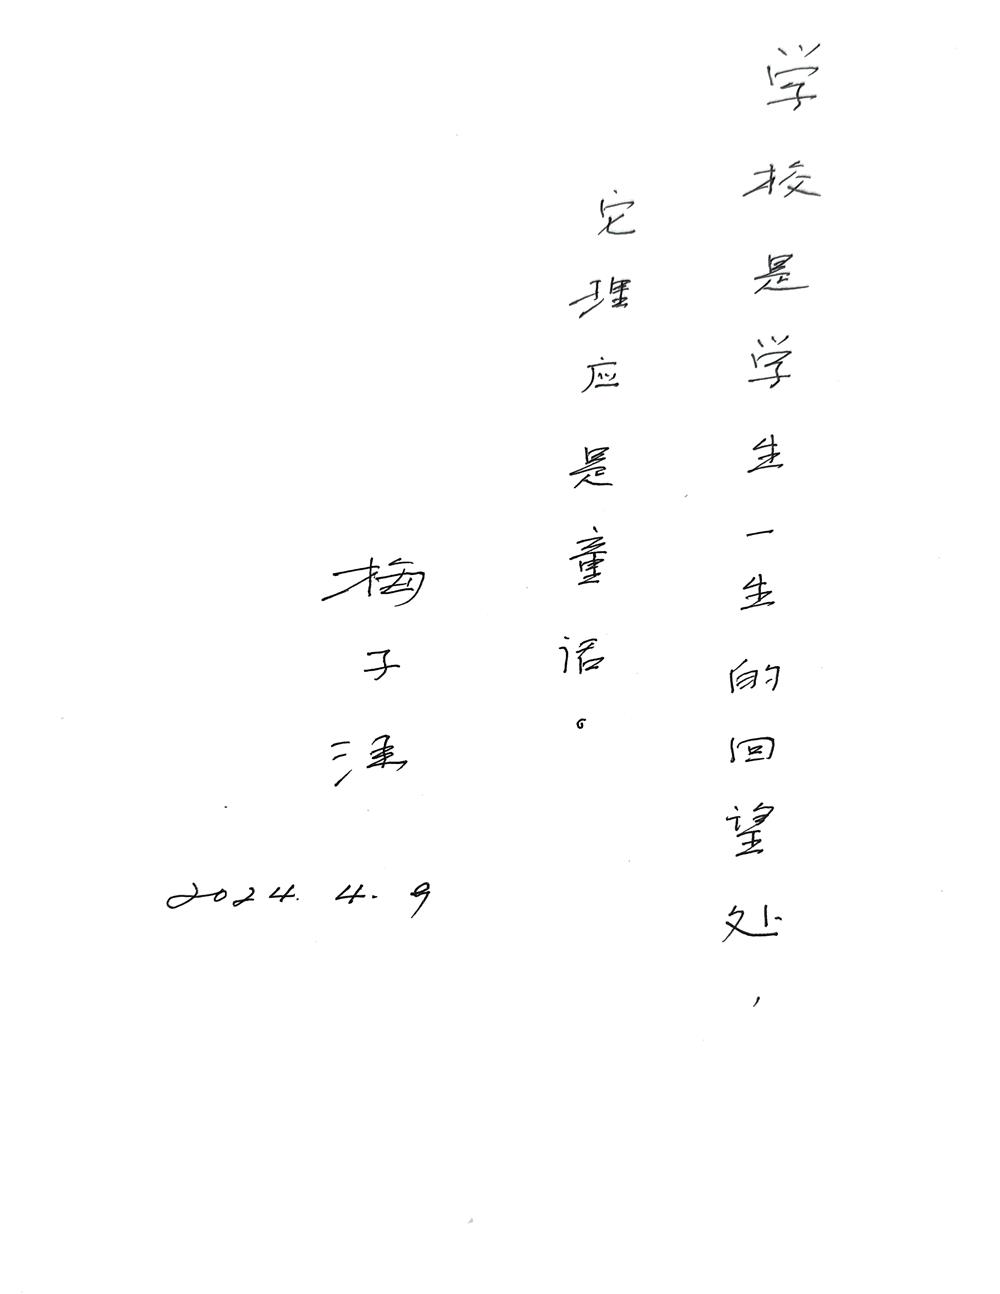 学校是学生一生的回望处，
它理应是童话。
梅子涵
2024.4.9